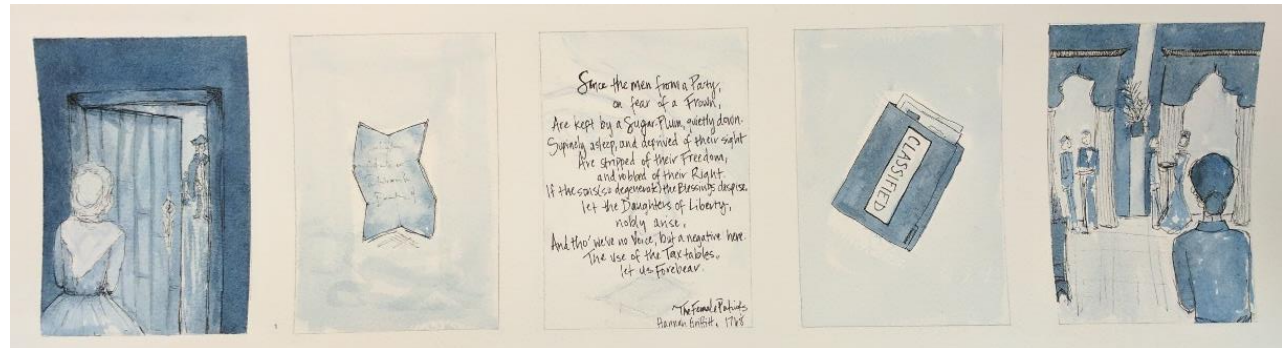 Since the men from a Party,
on fear of a Frown,
Are kept by a Sugar-Plum, quietly down.
Supinely asleep, and deprived of their sight
Are stripped of their Freedom,
and robbed of their Right.
If the sons (so degenerate) the Blessings despise
let the Daughters of Liberty,
nobly arise,
And tho' we've no Voice, but a negative here.
The use of the Taxtables,
let us Forebear.
The Female Patriots
Hannah Griffitt, 1768
CLASSIFIED